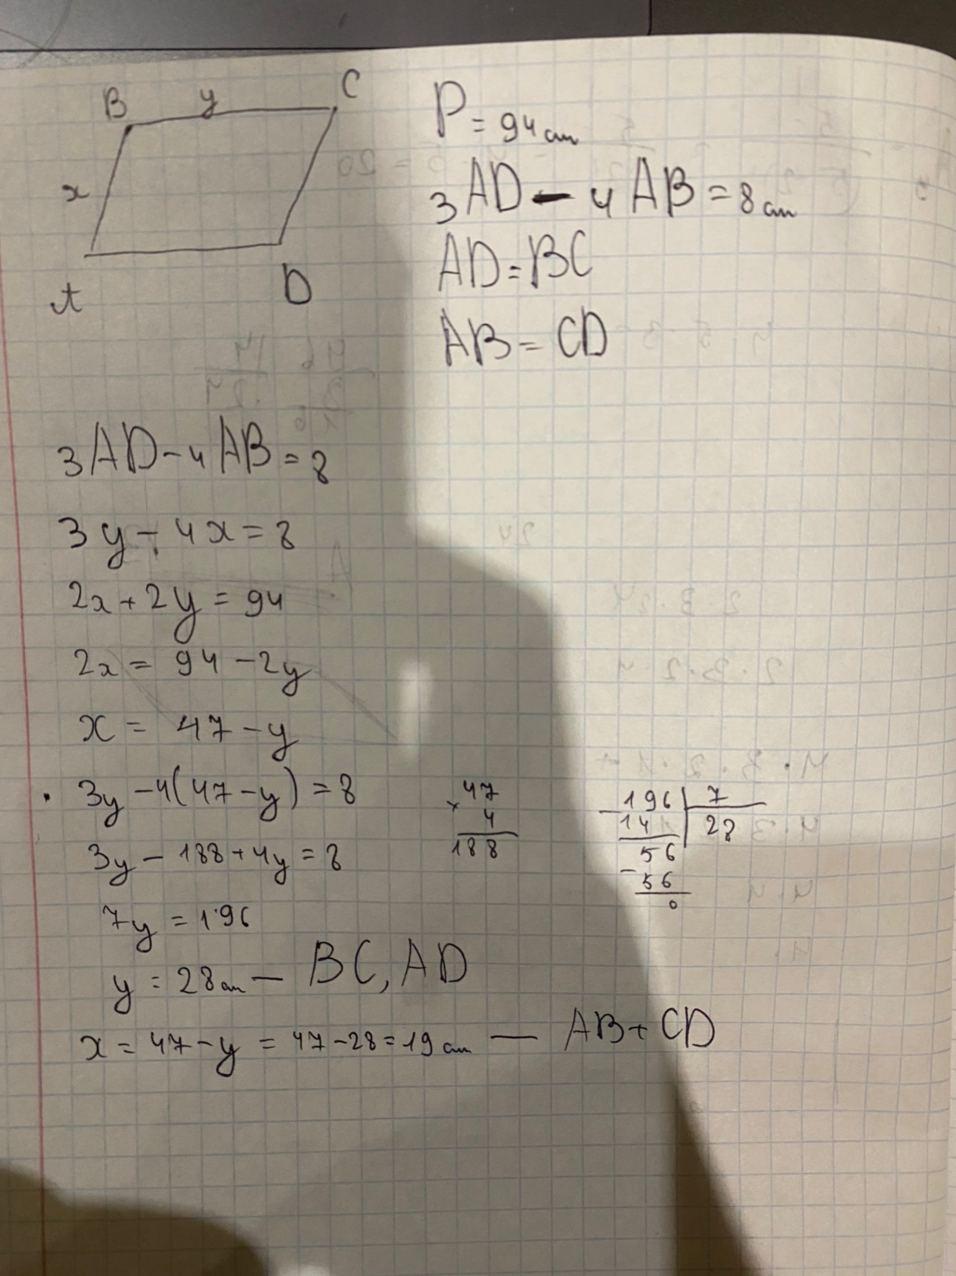 B y C
x
A D
P = 94 см
3AD - 4AB = 8 см
AD = BC
AB = CD
3AD - 4AB = 8
3y - 4x = 8
2x + 2y = 94
2x = 94 - 2y
x = 47 - y
· 3y - 4(47 - y) = 8
3y - 188 + 4y = 8
7y = 196
y = 28 см — BC, AD
x = 47 - y = 47 - 28 = 19 см — AB + CD
47
× 4
188
- 196 | 7
14 | 28
56
- 56
0